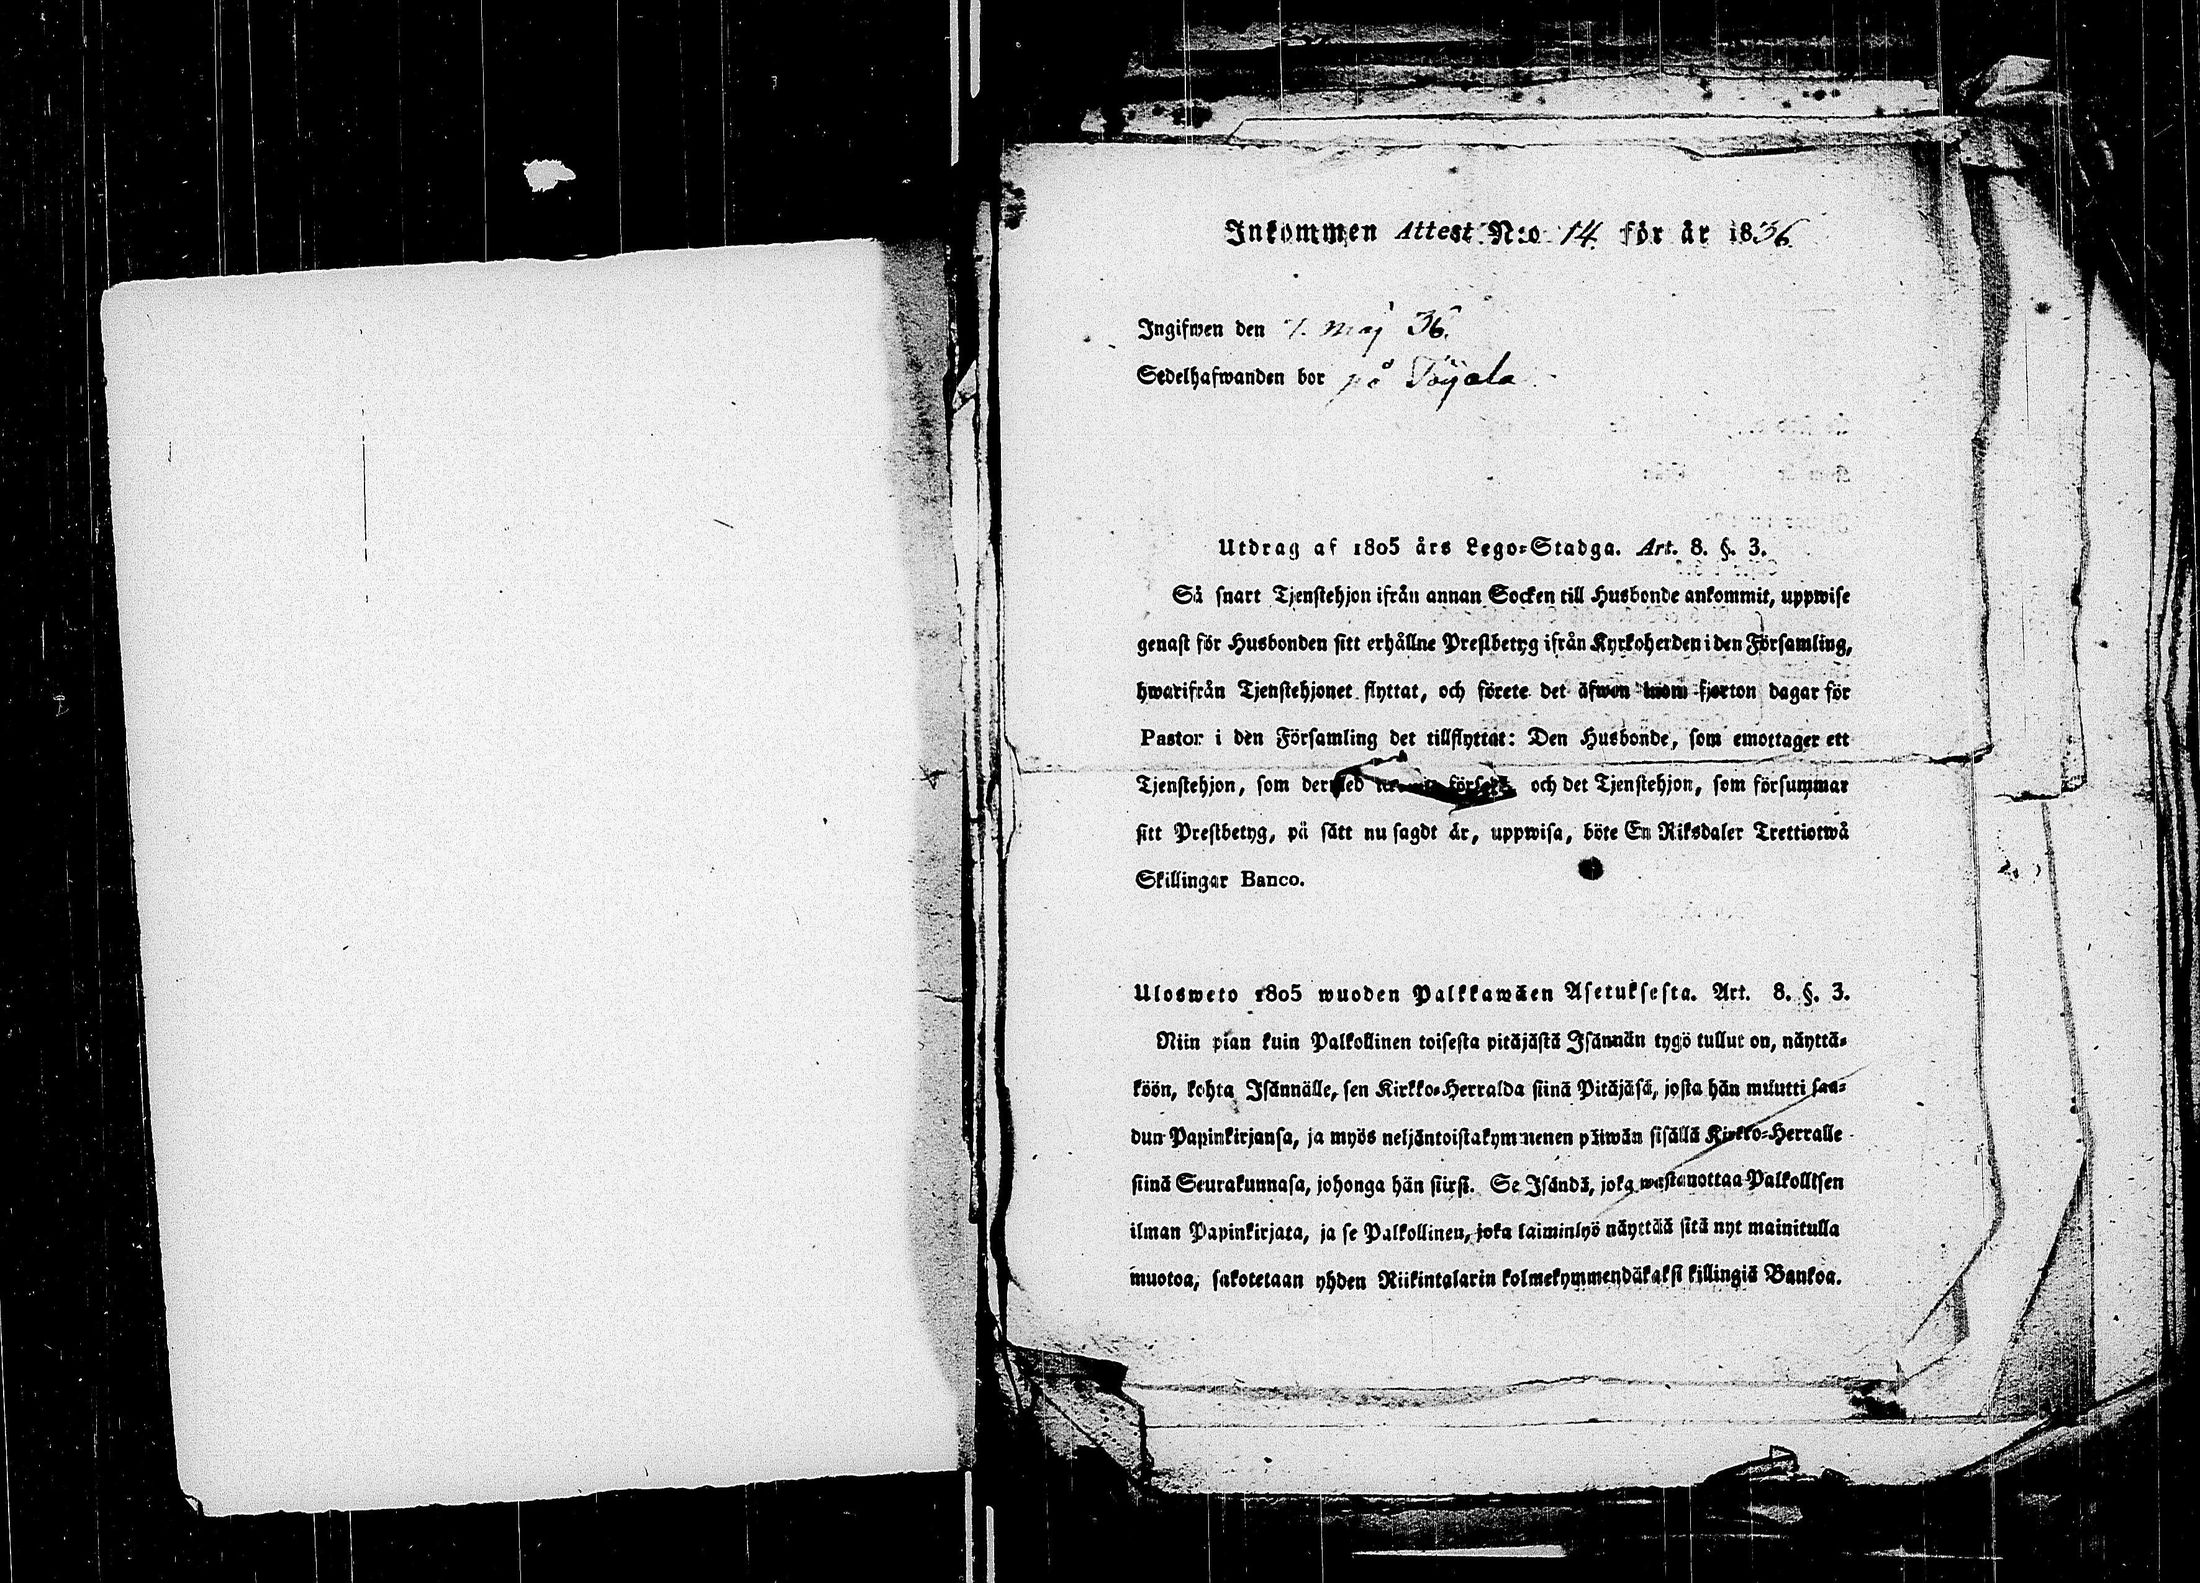 Inkommen Attest N:o 14. för år 1836.
Ingifwen den 7. Maj 36.
Sedelhafwanden bor på Töyala
Utdrag af 1805 års Lego-Stadga. Art. 8. §. 3.
Så snart Tjenstehjon ifrån annan Socken till Husbonde ankommit, uppwise
genast för Husbonden sitt erhållne Prestbetyg ifrån Kyrkoherden i den Församling,
hwarifrån Tjenstehjonet flyttat, och förete det äfwen inom fjorton dagar för
Pastor i den Församling det tillflyttat: Den Husbonde, som emottager ett
Tjenstehjon, som dermed försedt, och det Tjenstehjon, som försummar
sitt Prestbetyg, på sätt nu sagdt är, uppwisa, böte En Riksdaler Trettiotwå
Skillingar Banco.
Ulosweto 1805 wuoden Palkkawäen Asetuksesta. Art. 8. §. 3.
Niin pian kuin Palkollinen toisesta pitäjästä Isännän tygö tullut on, näyttä-
köön, kohta Isännälle, sen Kirkko-Herralda siinä Pitäjäsä, josta hän muutti saa-
dun Papinkirjansa, ja myös neljäntoistakymmenen päiwän sisällä Kirkko-Herralle
siinä Seurakunnasa, johonga hän siirsi. Se Isändä, joka wastanottaa Palkollisen
ilman Papinkirjata, ja se Palkollinen, joka laiminlyö näyttää sitä nyt mainitulla
muotoa, sakotetaan yhden Riikintalarin kolmekymmendäkaksi killingiä Bankoa.